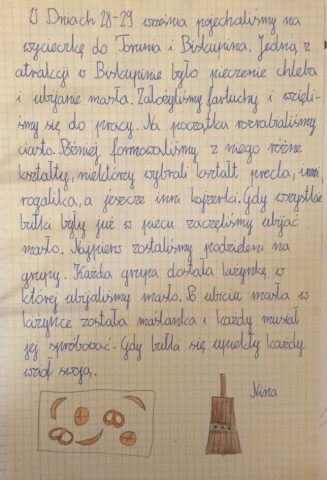 W Dniach 28-29 września pojechaliśmy na
wycieczkę do Torunia i Biskupina. Jedną z
atrakcji w Biskupinie było pieczenie chleba
i ubijanie masła. Założyliśmy fartuchy i wzięli-
śmy się do pracy. Na początku rozrabialiśmy
ciasto. Później formowaliśmy z niego różne
kształty, niektórzy wybrali kształt precla, inni
rogalika, a jeszcze inni kajzerki. Gdy wszystkie
bułki były już w piecu zaczęliśmy ubijać
masło. Najpierw zostaliśmy podzieleni na
grupy. Każda grupa dostała kiżynkę, w
której ubijaliśmy masło. Po ubiciu masła w
kiżynce została maślanka i każdy musiał
jej spróbować. Gdy bułki się upiekły każdy
wziął swoją.
Nina